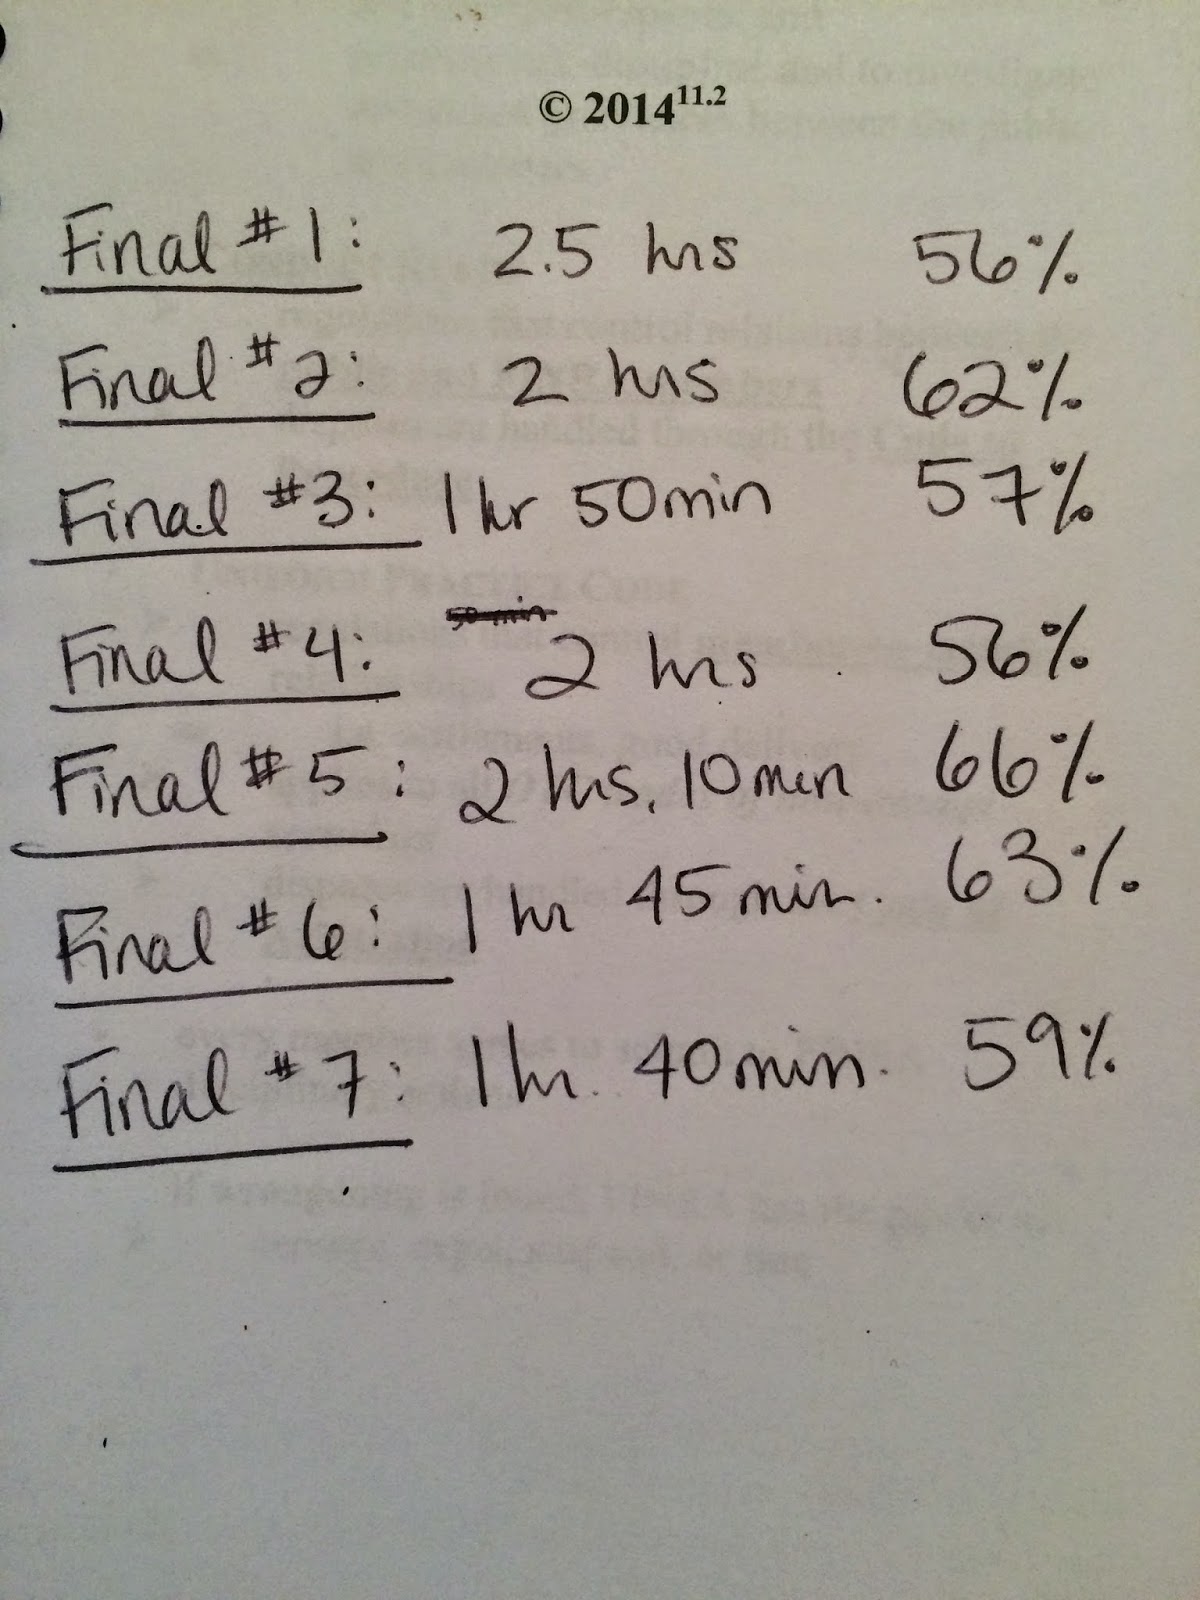 © 2014 11.2
Final #1: 2.5 hrs 56%
Final #2: 2 hrs 62%
Final #3: 1 hr 50min 57%
50 min
Final #4: 2 hrs 56%
Final #5: 2 hrs, 10min 66%
Final #6: 1 hr 45min. 63%
Final #7: 1 hr. 40min. 59%